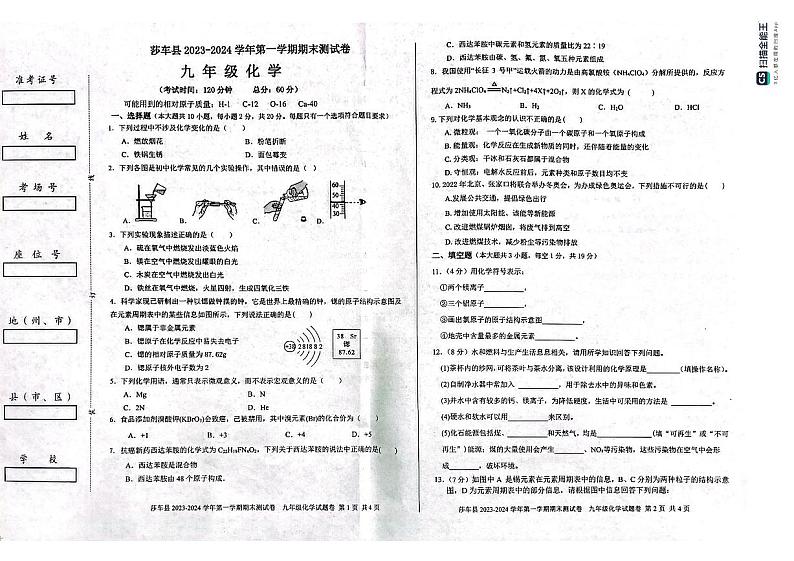 莎车县 2023-2024 学年第一学期期末测试卷
九 年 级 化 学
(考试时间：120 分钟 总分：60 分)
可能用到的相对原子质量：H-1 C-12 O-16 Ca-40
一、选择题（本大题共 10 小题，每小题 2 分，共 20 分，每题只有一个选项符合题目要求）
1. 下列过程中不涉及化学变化的是（ ）
A．燃放烟花 B．粉笔折断
C．铁锅生锈 D．面包霉变
2．下列各图是初中化学常见的几个实验操作，其中错误的是（ ）
A. B. C. D.
60
50
40
30
3．下列实验现象描述正确的是（ ）
A．硫在氧气中燃烧发出淡蓝色火焰
B．镁在空气中燃烧发出耀眼的白光
C．木炭在空气中燃烧发出白光
D．铁丝在氧气中燃烧，火星四射，生成四氧化三铁
4．科学家现已研制出一种以锶做钟摆的钟，它是世界上最精确的钟，锶的原子结构示意图及
在元素周期表中的某些信息如图所示，下列说法正确的是（ ）
A．锶属于非金属元素
B．锶原子在化学反应中易失去电子
C．锶的相对原子质量为 87.62g
D．锶原子核外电子数为 2
+38 2 8 18 8 2
38 Sr
锶
87.62
5．下列化学用语，通常只表示微观意义，而不表示宏观意义的是（ ）
A．Mg B．N
C．2N D．He
6．食品添加剂溴酸钾(KBrO₃)会致癌，已被禁用，其中溴元素(Br)的化合价为（ ）
A．+1 B．+3 C．+4 D．+5
7．抗癌新药西达苯胺的化学式为 C₂₂H₁₉FN₄O₂，下列关于西达苯胺的说法中正确的是( )
A．西达苯胺是混合物
B．西达苯胺由 48 个原子构成．
莎车县 2023-2024 学年第一学期期末测试卷 九年级化学试题卷 第 1 页 共 4 页
C．西达苯胺中碳元素和氢元素的质量比为 22：19
D．西达苯胺由碳、氢、氟、氮、氧五种元素组成
8．我国使用“长征 3 号甲”运载火箭的动力是由高氯酸铵（NH₄ClO₄）分解所提供的，反应方
程式为 2NH₄ClO₄ △ N₂↑+Cl₂↑+4X↑+2O₂↑，则 X 的化学式为（ ）
A．NH₃ B．H₂ C．H₂O D．HCl
9.下列对化学基本观念的认识不正确的是（ ）
A. 微粒观： 一个一氧化碳分子由一个碳原子和一个氧原子构成
B. 能量观：化学反应在生成新物质的同时，还伴随着能量的变化
C. 分类观：干冰和石灰石都属于混合物
D. 守恒观：电解水反应前后，元素种类和原子数目均不变
10. 2022 年北京、张家口将联合举办冬奥会，为办成绿色奥运会，下列措施不可行的是( )
A.发展公共交通，提倡绿色出行
B. 增加使用太阳能、该能等新能源
C. 改进燃煤锅炉烟囱，将废气排到高空
D. 改进燃煤技术，减少粉尘等污染物排放
二、填空题（本大题共 3 小题，每空 1 分，共 19 分）
11.（4 分）用化学符号表示：
①两个镁离子 ．
②三个铝原子 ．
③画出氯原子的原子结构示意图 ．
④地壳中含量最多的金属元素 ．
12．（8 分）水和燃料与生产生活息息相关，请用所学知识回答下列问题。
(1)茶杯内的纱网，可将茶叶与茶水分离，该设计利用的化学原理是 （填操作名称）。
(2)自制净水器中常加入 ，用于除去水中的异味和色素。
(3)井水中含有较多的钙、镁离子，为降低硬度，生活中可采用的方法是 。
(4)硬水和软水可以用 来区别。
(5)化石能源包括煤、 和天然气，均是 （填“可再生”或“不可
再生”）能源；煤的大量使用会产生 、NO₂等污染物，这些污染物在空气中会形
成 ，破坏环境。
13．（7 分）如图中 A 是锡元素在元素周期表中的信息，B、C 分别为两种粒子的结构示意
图，D 为元素周期表中的部分信息，请根据图中信息回答下列问题：
莎车县 2023-2024 学年第一学期期末测试卷 九年级化学试题卷 第 2 页 共 4 页
准 考 证 号
姓 名
考 场 号
座 位 号
地（州、市）
县（市、区）
学 校
线
订
装
CS 扫描全能王